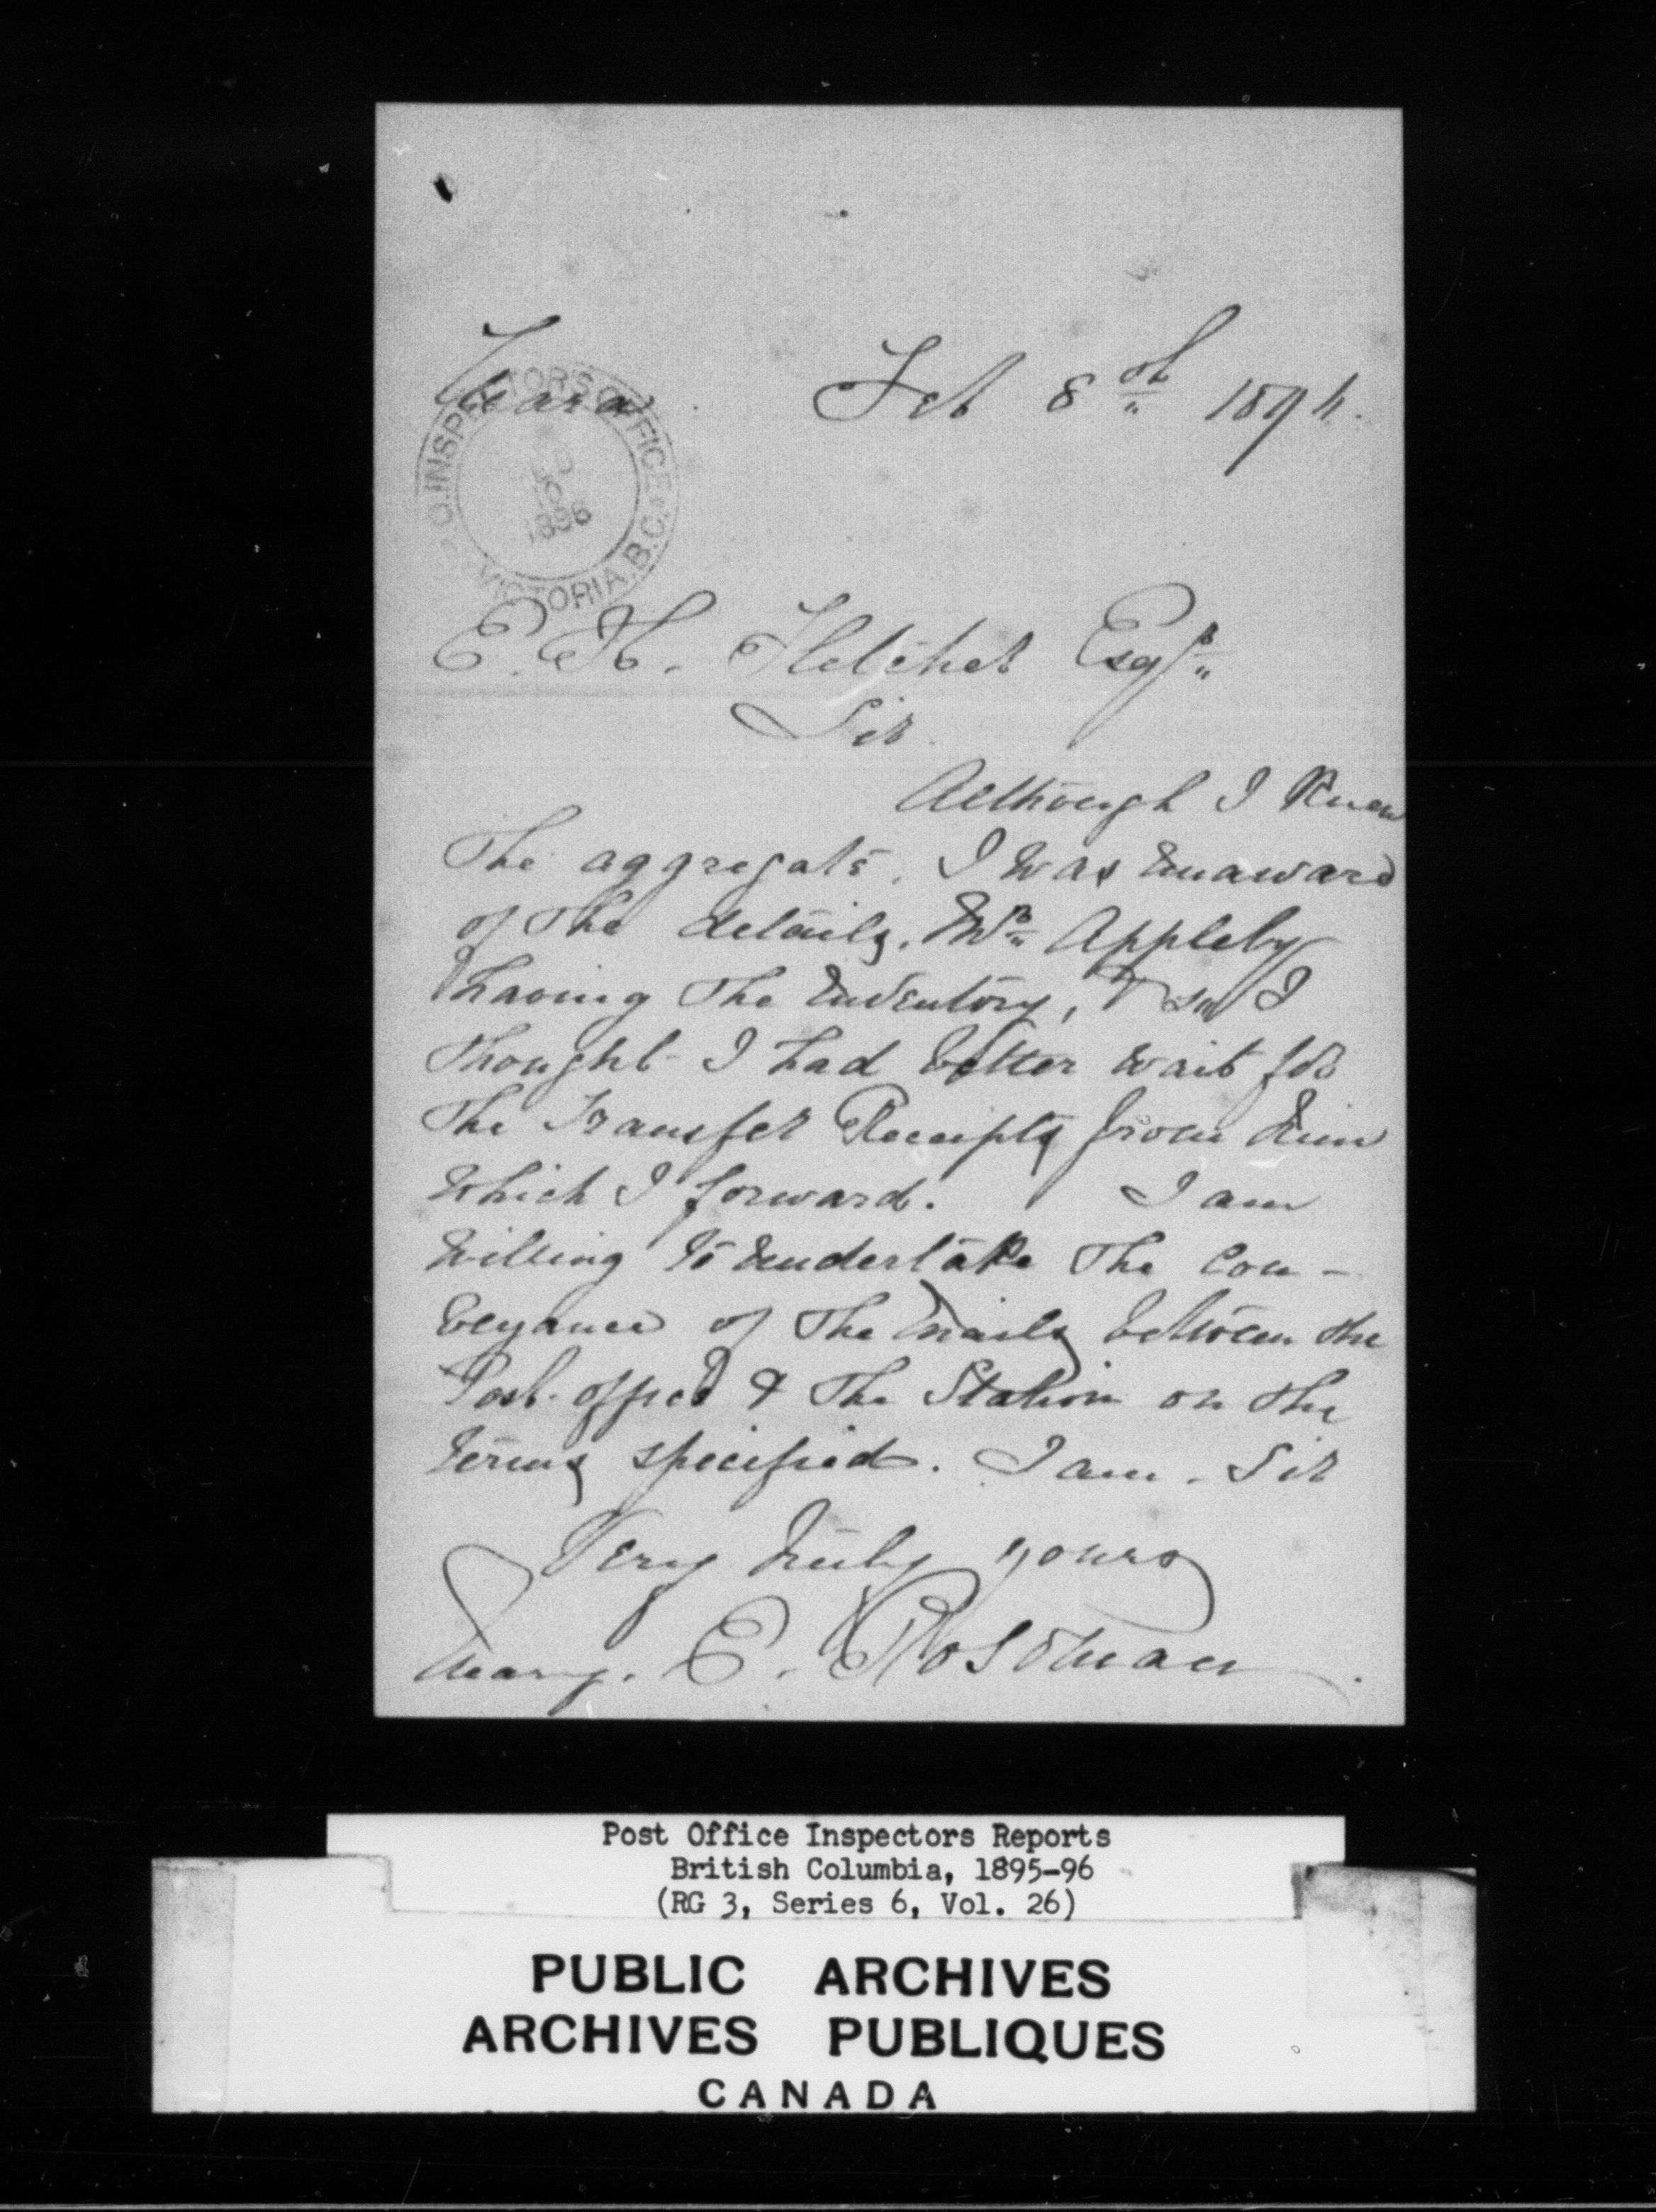 Feb 8th 189
P.O. INSPECTOR'S OFFICE
1896
VICTORIA. B.C.
E. H. Fletcher Esqr
Sir
Although I knew
the aggregate, I was unaware
of the details, Mr Appleby
having the Inventory, & so I
thought I had better wait for
the Transfer Receipts from him
which I forward. I am
willing to undertake the con-
veyance of the mails between the
Post-office & the Station on the
terms specified. I am. Sir
Very truly yours
E.
Post Office Inspectors Reports
British Columbia, 1895-96
(RG 3, Series 6, Vol. 26)
PUBLIC ARCHIVES
ARCHIVES PUBLIQUES
CANADA